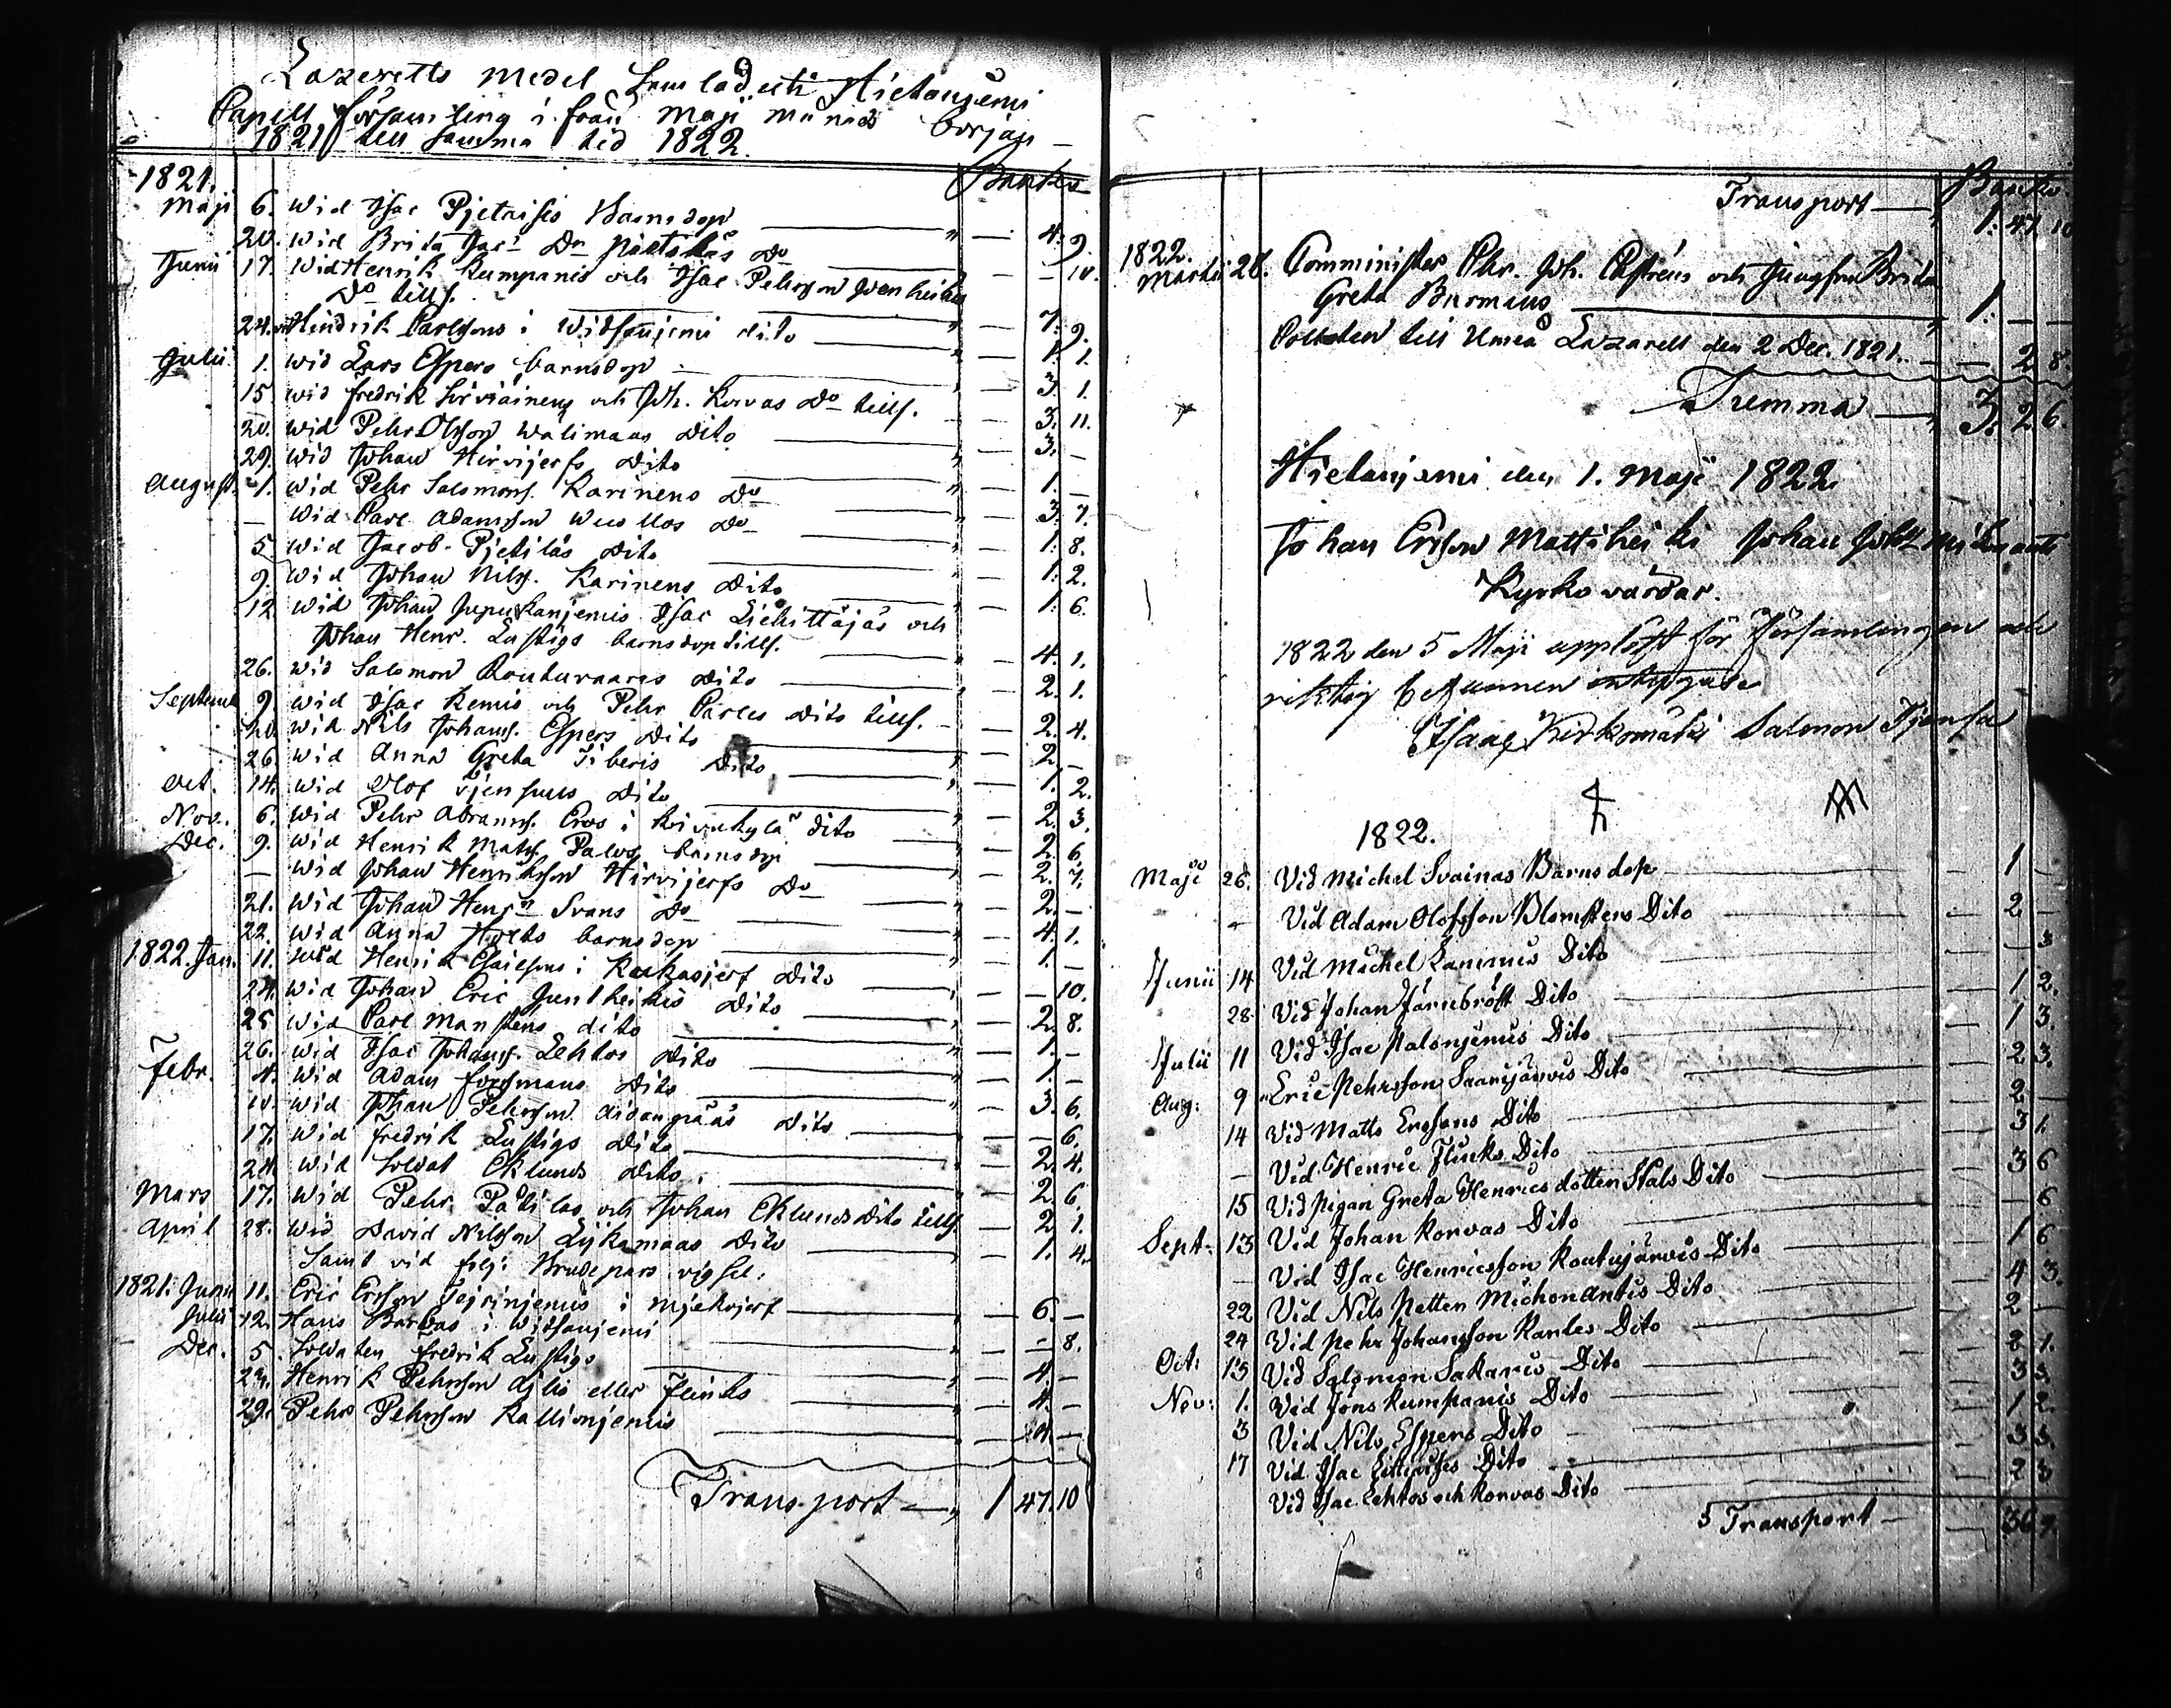 Lazeretts medel samlade uti Hietaniemi
Capell församling ifrån Maji månads början
1821 till samma tid 1822.
Banko
1821.
Maji 6. Wid Isac Pjetrises Barnsdop — 4. 9.
20. Wid Brita Jacs Dr Do — — 10.
Junii 17. Wid Henrik Kumpanis och Isac Pehrsson Juenheikis
Do tills. — 7. 9.
24. Hindrik Carlssons i Witsaniemi dito — 1. 1.
Julii 1. Wid Lars Espers barnsdop — 3. 1.
15. Wid Fredrik och Joh. Korvas Do tills. — 3. 11.
20. Wid Pehr Olsson Walimaas Dito — 3. –
29. Wid Johan Hirvijerfs Dito — 1. –
August. 1. Wid Pehr Salomons. Karinens Do — 3. 7.
— Wid Carl Adamsson Do — 1. 8.
5. Wid Jacob Pjetiläs Dito — 1. 2.
9. Wid Johan Nils. Karinens Dito — 1. 6.
12 Wid Johan Isac och
Johan Henr. Lustigs barnsdop tills. — 4. 1.
26. Wid Salomon Routuvaaras Dito — 2. 1.
Septemb. 9. Wid Isac Kemis och Pehr Carles Dito tills. — 2. 4.
20. Wid Nils Johans. Espers Dito — 2 –
26. Wid Anna Greta Dito — 1. 2.
Oct. 14. Wid Olof Dito — 2. 3.
Nov. 6. Wid Pehr Abrams. Eros i Koivukylä Dito — 2. 6.
Dec. 9. Wid Henrik Mats. Palos barnsdop — 2. 7.
— Wid Johan Henriksson Hirvijerfs Do — 2. –
21. Wid Johan Henrs Svans Do — 4. 1.
22. Wid Anna barnsdop — 1. –
1822. Jan. 11. Wid Henrik i Kuckasjerf Dito — — 10.
24. Wid Johan Eric Juntheikis Dito — 2. 8.
25 Wid Carl Manstens dito — 1. –
26. Wid Isac Johans. Lehtos Dito — 1. –
Febr. 4. Wid Adam Forsmans Dito — 3. 6.
10. Wid Johan Pehrsson Aidanpääs Dito — — 6.
17. Wid Fredrik Lustigs Dito — 2. 4.
24. Wid Soldat Eklunds Dito. — 2. 6
Mars 17. Wid Pehr och Johan Eklunds Dito tills. — 2. 1.
April 28. Wid David Nilsson Dito — 1. 4.
Samt vid följ: Brudepars vigsel:
1821: Junii 11. Eric Ersson i — 6. –
Julii 12. Hans Barbas i Witsaniemi — — 8.
Dec. 5 Soldaten Fredrik Lustigs — 4. –
23. Henrik Pehrsson Ajlis eller Flinks — 4. –
29. Pehr Pehrsson Kallioniemis — 4 –
Transport — 1 47. 10
Banko.
Transport — 1. 47. 10
1822.
Martii 28. Comminister Chr. Joh. och Jungfru Brita
Greta Burmans — 1. – –
till Umeå Lazarett den 2 Dec. 1821. — 2 8.
Summa — 3. 2 6.
Hietaniemi den 1. Maji 1822.
Johan Ersson Mattiheikki Johan Johs
Kyrkovärdar.
1822 den 5 Maji uppläst för Församlingen och
riktig befunnen
Isaac Kirkomäki Salomon
1822.
Maji 26. Vid Michel Svainas Barnsdop — 1 –
– Vid Adam Olofsson Blomsters Dito — 2 –
Junii 14 Vid Michel Dito — – 3
28 Vid Johan Järnbröst Dito — 1 2.
Julii 11 Vid Isac Palonjemis Dito — 1 3.
Aug: 9 Eric Pehrsson Saarijärvis Dito — 2 3.
14 Vid Matts Erssons Dito — 2 –
– Vid Henric Flinks Dito — 3 1.
15 Vid Pigan Greta Henricsdotter Stals Dito — 3 6
Sept. 13 Vid Johan Korvas Dito — – 6
– Vid Isac Henricsson Koutujärvis Dito — 1 6
22 Vid Nils Petter Michonantis Dito — 4 3.
24 Vid Pehr Johansson Kantes Dito — 2 –
Oct: 13 Vid Salomon Sakaris Dito — 2 1.
Nov: 1. Vid Jöns Kumpanis Dito — 3 3.
3 Vid Nils Espers Dito — 1 2.
17 Vid Isac Dito — 3 3.
Vid Isac Lehtos och Korvas Dito — 2 3
Transport — 36 7.